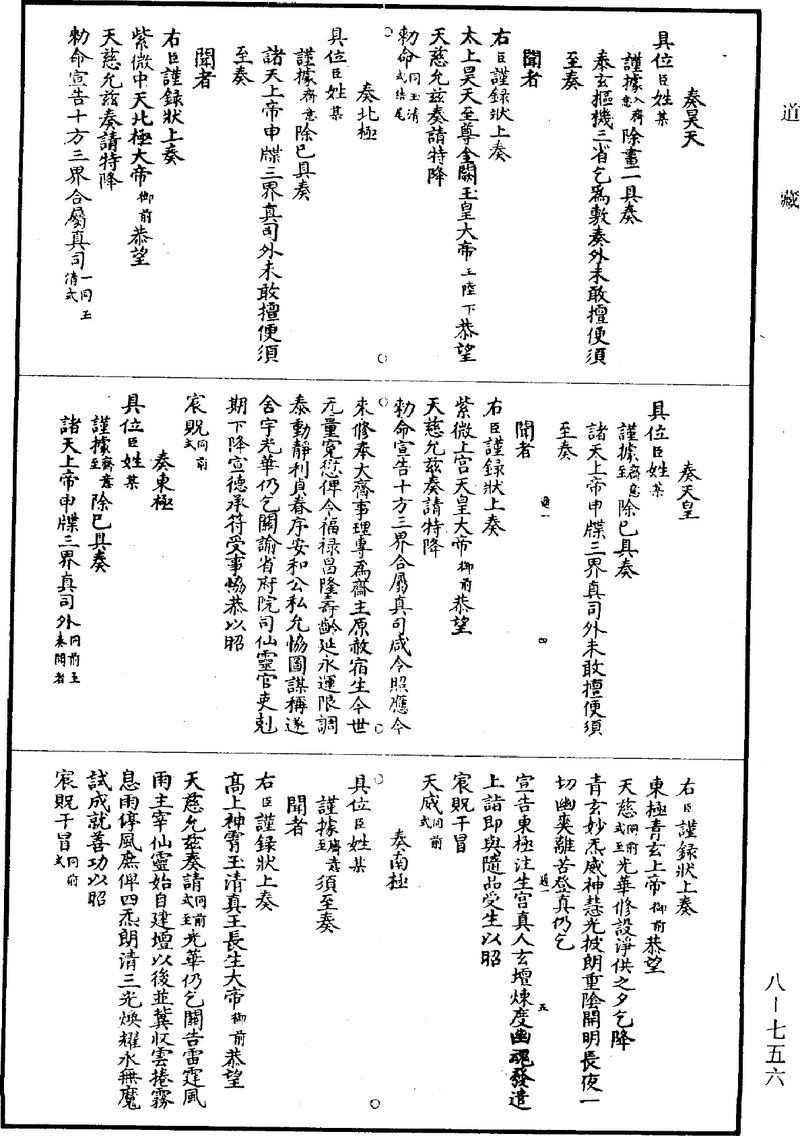 道藏
奏昊天
具位臣姓某
謹據入齋意除畫一具奏
奉玄樞機三省乞為敷奏外未敢擅便須
至奏
聞者
右臣謹録狀上奏
太上昊天至尊金闕玉皇大帝玉陛下恭望
天慈允兹奏請特降
勑命同玉清式結尾
奏北極
具位臣姓某
謹據齋意除已具奏
諸天上帝申牒三界真司外未敢擅便須
至奏
聞者
右臣謹録狀上奏
紫微中天北極大帝御前恭望
天慈允兹奏請特降
勑命宣告十方三界合屬真司一同玉清式
奏天皇
具位臣姓某
謹據齋意至除已具奏
諸天上帝申牒三界真司外未敢擅便須
至奏
聞者
通一
四
右臣謹録狀上奏
紫微上宫天皇大帝御前恭望
天慈允兹奏請特降
勑命宣告十方三界合屬真司咸令照應今
來修奉大齋事理專為齋主原赦宿生今世
无量寃愆俾令福禄昌隆壽齡延永運限調
泰動靜利貞眷序安和公私允恊圖謀稱遂
舍宇光華仍乞關諭省府院司仙靈官吏剋
期下降宣德承符受事恊恭以昭
宸貺同前式
奏東極
具位臣姓某
謹據齋意至除已具奏
諸天上帝申牒三界真司外同前至未聞者
右臣謹録狀上奏
東極青玄上帝御前恭望
天慈同前式至光華修設淨供之夕乞降
青玄妙炁威神慧光披朗重陰開明長夜一
切幽爽離苦登真仍乞
通一
五
宣告東極注生宫真人玄壇煉度幽魂發遣
上詣即與隨品受生以昭
宸貺干冒
天威同前式
奏南極
具位臣姓某
謹據齋意至須至奏
聞者
右臣謹録狀上奏
髙上神霄玉清真王長生大帝御前恭望
天慈允兹奏請同前式至光華仍乞關告雷霆風
雨主宰仙靈始自建壇以後並冀收雲捲霧
息雨停風庶俾四炁朗清三光煥耀永無魔
試成就善功以昭
宸貺干冒同前式
八—七五六